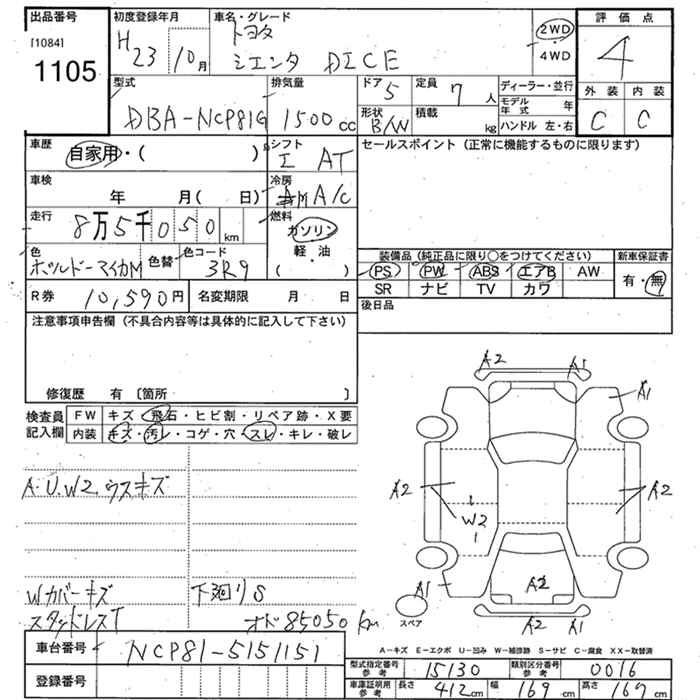 出品番号
[1084]
1105
初度登録年月
H23 10月
車名・グレード
トヨタ
シエンタ DICE
2WD
・
4WD
評価点
4
外装 内装
C C
型式
DBA-NCP81G
排気量
1500 cc
ドア 5
定員 7 人
形状 B/W
積載 kg
ディーラー・並行
モデル年式 年
ハンドル 左・右
車歴
自家用・( )
シフト
I AT
セールスポイント（正常に機能するものに限ります）
車検
年 月( 日)
冷房
A/C
走行
8万5千050 km
燃料
ガソリン
軽・油
( )
色
ボルドーマイカM
色替
色コード
3R9
装備品（純正品に限り○をつけてください）
PS PW ABS エアB AW
SR ナビ TV カワ
新車保証書
有・無
R券 10,590円
名変期限 月 日
後日品
注意事項申告欄（不具合内容等は具体的に記入して下さい）
修復歴 有〔箇所 〕
検査員記入欄
FW キズ・飛石・ヒビ割・リペア跡・X要
内装 キズ・汚レ・コゲ・穴・スレ・キレ・破レ
A.U.W2.ウスキズ
Wカバーキズ
下廻りS
スタッドレスT
オド85050km
A2 A1
A1
A2
W2
A2
A1
A2
スペア
A2 A1
A－キズ E－エクボ U－凹み W－補修跡 S－サビ C－腐食 XX－取替済
車台番号
NCP81-5151151
登録番号
型式指定番号 参考 15130
類別区分番号 参考 0016
車庫証明用 参考
長さ 412cm 幅 169cm 高さ 167cm